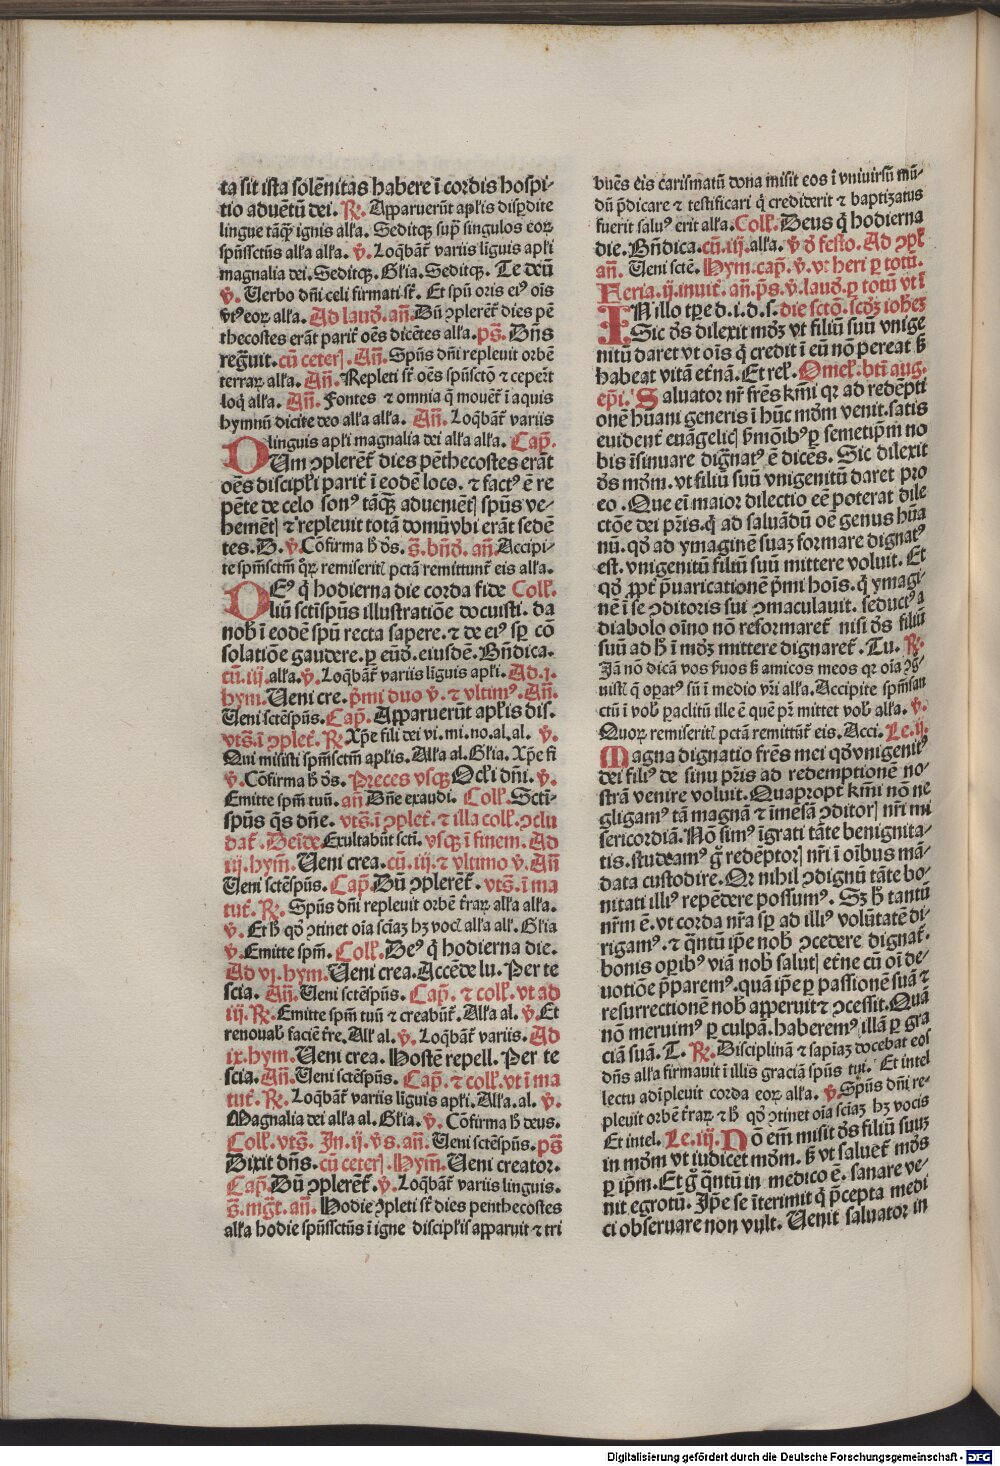 ta sit ista solēnitas habere ī cordis hospi-
tio aduētū dei. R̃. Apparuerūt apl̓is disꝑdite
lingue tāqꝫ ignis all̓a. Seditqꝫ sup̄ singulos eoꝝ
spūssctūs all̓a all̓a. v̄. Loq̄bāt̄ variis līguis apl̓i
magnalia dei. Seditqꝫ. Gl̓ia. Seditqꝫ. Te deū
v̄. Verbo dn̄i celi firmati st̄. Et spū oris eiꝰ oīs
v̓tꝰ eoꝝ all̓a. Ad laud̓. an̄. Dū ꝯplerēt̄ dies pē
thecostes erāt parit̄ oēs dicētes all̓a. ps̄. Dn̄s
regūit. cū ceterꝭ. An̄. Spūs dn̄i repleuit orbē
terraꝝ all̓a. An̄. Repleti st̄ oēs spūsctō ⁊ ceper̄t
loq̄ all̓a. An̄. Fontes ⁊ omnia q̄ mouēt̄ ī aquis
hymnū dicite deo all̓a all̓a. An̄. Loq̄bāt̄ variis
linguis apl̓i magnalia dei all̓a all̓a. Cap̄.
DUm ꝯplerēt̄ dies pēthecostes erāt
oēs discipl̓i parit̄ ī eodē loco. ⁊ factꝰ ē re
pēte de celo sonꝰ tāqꝫ̄ aduenietꝭ spūs ve-
hemētꝭ ⁊ repleuit totā domū vbi erāt sedē
tes. D. v̄. Cōfirma h̄ dꝰs. S̄. bn̄d̓. an̄. Accipi-
te spm̄sctm̄ q̄ꝝ remiseritꝭ pctā remittunt̄ eis all̓a.
DEꝰ q̄ hodierna die corda fide Coll̓.
liū sctīspūs illustratiōe docuisti. da
nob̄ ī eodē spū recta sapere. ⁊ de eiꝰ sꝑ cō
solatiōe gaudere. ꝑ eūd̓. eiusdē. Bn̄dica.
cū. iij. all̓a. v̄. Loq̄bāt̄ variis līguis apl̓i. Ad. j.
hym. Ueni cre. p̄mi duo v̄. ⁊ vltimꝰ. An̄.
Ueni sctēspūs. Cap̄. Apparuerūt apl̓is dis.
vts̄. ī ꝯplet̄. R̃. Xp̄e fili dei vi. mi. no. al. al. v̄.
Qui misisti spm̄sctm̄ apl̓is. All̓a al. Gl̓ia. Xp̄e fi
v̄. Cōfirma h̄ dꝰs. Preces vsqꝫ Ocl̓i dn̄i. v̄.
Emitte spm̄ tuū. an̄ Dn̄e exaudi. Coll̓. Sctī-
spūs q̄s dn̄e. vts̄. ī ꝯplet̄. ⁊ illa coll̓. ꝯclu
dat̄. Deīde Exultabūt sctī. vsqꝫ ī finem. Ad
iij. hym̄. Ueni crea. cū. iij. ⁊ vltimo v̄. An̄
Ueni sctēspūs. Cap̄. Dū ꝯplerēt̄. vts̄. ī ma
tut̄. R̃. Spūs dn̄i repleuit orbē t̄raꝝ all̓a all̓a.
v̄. Et h̄ qd̓ ꝯtinet oīa sciāꝫ hꝫ vocꝭ all̓a all̓. Gl̓ia
v̄. Emitte spm̄. Coll̓. Deꝰ q̄ hodierna die.
Ad vj. hym. Ueni crea. Accēde lu. Per te
scia. An̄. Ueni sctēspūs. Cap̄. ⁊ coll̓. vt ad
iij. R̃. Emitte spm̄ tuū ⁊ creabūt̄. All̓a al. v̄. Et
renouab̄ faciē t̄re. All̓ al. v̄. Loq̄bāt̄ variis. Ad
ix. hym. Ueni crea. Hostē repell. Per te
scia. An̄. Ueni sctēspūs. Cap̄. ⁊ coll̓. vt ī ma
tut̄. R̃. Loq̄bāt̄ variis līguis apl̓i. All̓a. al. v̄.
Magnalia dei all̓a al. Gl̓ia. v̄. Cōfirma h̄ deus.
Coll̓. vts̄. In. ij. v̄s. an̄. Ueni sctēspūs. ps̄
Dixit dn̄s. cū ceterꝭ. Hym̄. Ueni creator.
Cap̄. Dū ꝯplerēt̄. v̄. Loq̄bāt̄ variis linguis.
S̄. mḡt. an̄. Hodie ꝯpleti st̄ dies penthecostes
all̓a hodie spūssctūs ī igne discipl̓is apparuit ⁊ tri
buēs eis carismatū dona misit eos ī vniuirsū mū-
dū p̄dicare ⁊ testificari q̄ crediderit ⁊ baptizatus
fuerit saluꝰ erit all̓a. Coll̓. Deus q̄ hodierna
die. Bn̄dica. cū. iij. all̓a. v̄ d̓ festo. Ad ꝯpl̓
an̄. Ueni sctē. Hym. cap̄. v̄. vt heri ꝑ totū.
Feria. ij. inuit̄. an̄. p̄s. v̄. laud̓. ꝑ totū vt ī
IN illo tꝑe d. i. d. s. die sctō. scd̓ꝫ iohēꝫ
Sic dꝰs dilexit mūdꝫ vt filiū suū vnige
nitū daret vt oīs q̄ credit ī eū nō pereat sꝫ
habeat vitā et̄nā. Et rel̓. Omel̓. bti aug.
ep̄i. Saluator nr̄ frēs km̄i qꝛ ad redēpti
onē hūani generis ī hūc mūdm venit. satis
euident̄ euāgelicꝭ p̄mōibꝰ ꝑ semetip̄m no
bis īsinuare dignatꝰ ē dicēs. Sic dilexit
dꝰs mūdm. vt filiū suū vnigenitū daret pro
eo. Que ei maior dilectio eē poterat dile
ctōe dei pr̄is. q̄ ad saluādū oē genus hūa
nū. qd̓ ad ymaginē suaꝫ formare dignatꝰ
est. vnigenitū filiū suū mittere voluit. Et
qd̓ ꝓpt̄ p̄uaricationē p̄mi hoīs. q̄ ymagi-
nē ī se ꝯditoris sui ꝯmaculauit. seductꝰ a
diabolo oīno nō reformaret̄ nisi dꝰs filiū
suū ad h̄ ī mūdꝫ mittere dignaret̄. Tu. R̃.
Jā nō dicā vos s̄uos sꝫ amicos meos qꝛ oīa ꝯḡ-
uistꝭ q̄ opatꝰ sū ī medio vr̄i all̓a. Accipite spm̄san
ctū ī vob̄ paclitū ille ē quē pr̄ mittet vob̄ all̓a. v̄.
Quoꝝ remiseritꝭ pctā remittāt̄ eis. Acci. Le. ij.
Magna dignatio frēs mei qd̓ vnigenitꝰ
dei filiꝰ de sinu pr̄is ad redemptionē no-
strā venire voluit. Quapropt̄ km̄i nō ne
gligamꝰ tā magnā ⁊ īmēsā ꝯditorꝭ nr̄i mi
sericordiā. Nō simꝰ īgrati tāte benignita-
tis. studeamꝰ ḡ redēptorꝭ nr̄i ī oībus mā-
data custodire. Qꝛ nihil ꝯdignū tāte bo-
nitati illiꝰ repēdere possumꝰ. Sꝫ h̄ tantū
nr̄m ē. vt corda nr̄a sꝑ ad illiꝰ volūtatē di-
rigamꝰ. ⁊ q̄ntū ip̄e nob̄ ꝯcedere dignat̄.
bonis oꝑibꝰ viā nob̄ salutꝭ et̄ne cū oī de-
uotiōe p̄paremꝰ. quā ip̄e ꝑ passionē suā ⁊
resurrectionē nob̄ apperuit ⁊ ꝯcessit. Quā
nō meruimꝰ ꝑ culpā. haberemꝰ illā ꝑ gra
ciā suā. T. R̃. Disciplinā ⁊ sapīaꝫ docebat eos
dn̄s all̓a firmauit ī illis graciā spūs tui. Et intel
lectu adīpleuit corda eoꝝ all̓a. v̄. Spūs dn̄i re-
pleuit orbē t̄raꝝ ⁊ h̄ qd̓ ꝯtinet oīa sciaꝫ hꝫ vocis
Et intel. Le. iij. Nō em̄ misit dꝰs filiū suuꝫ
in mūdm vt iudicet mūdm. sꝫ vt saluet̄ mūdꝰs
ꝑ ip̄m. Et ḡ q̄ntū in medico ē. sanare ve-
nit egrotū. Ip̄e se īterimit q̄ p̄cepta medi
ci obseruare non vult. Uenit saluator in
Digitalisierung gefördert durch die Deutsche Forschungsgemeinschaft - DFG